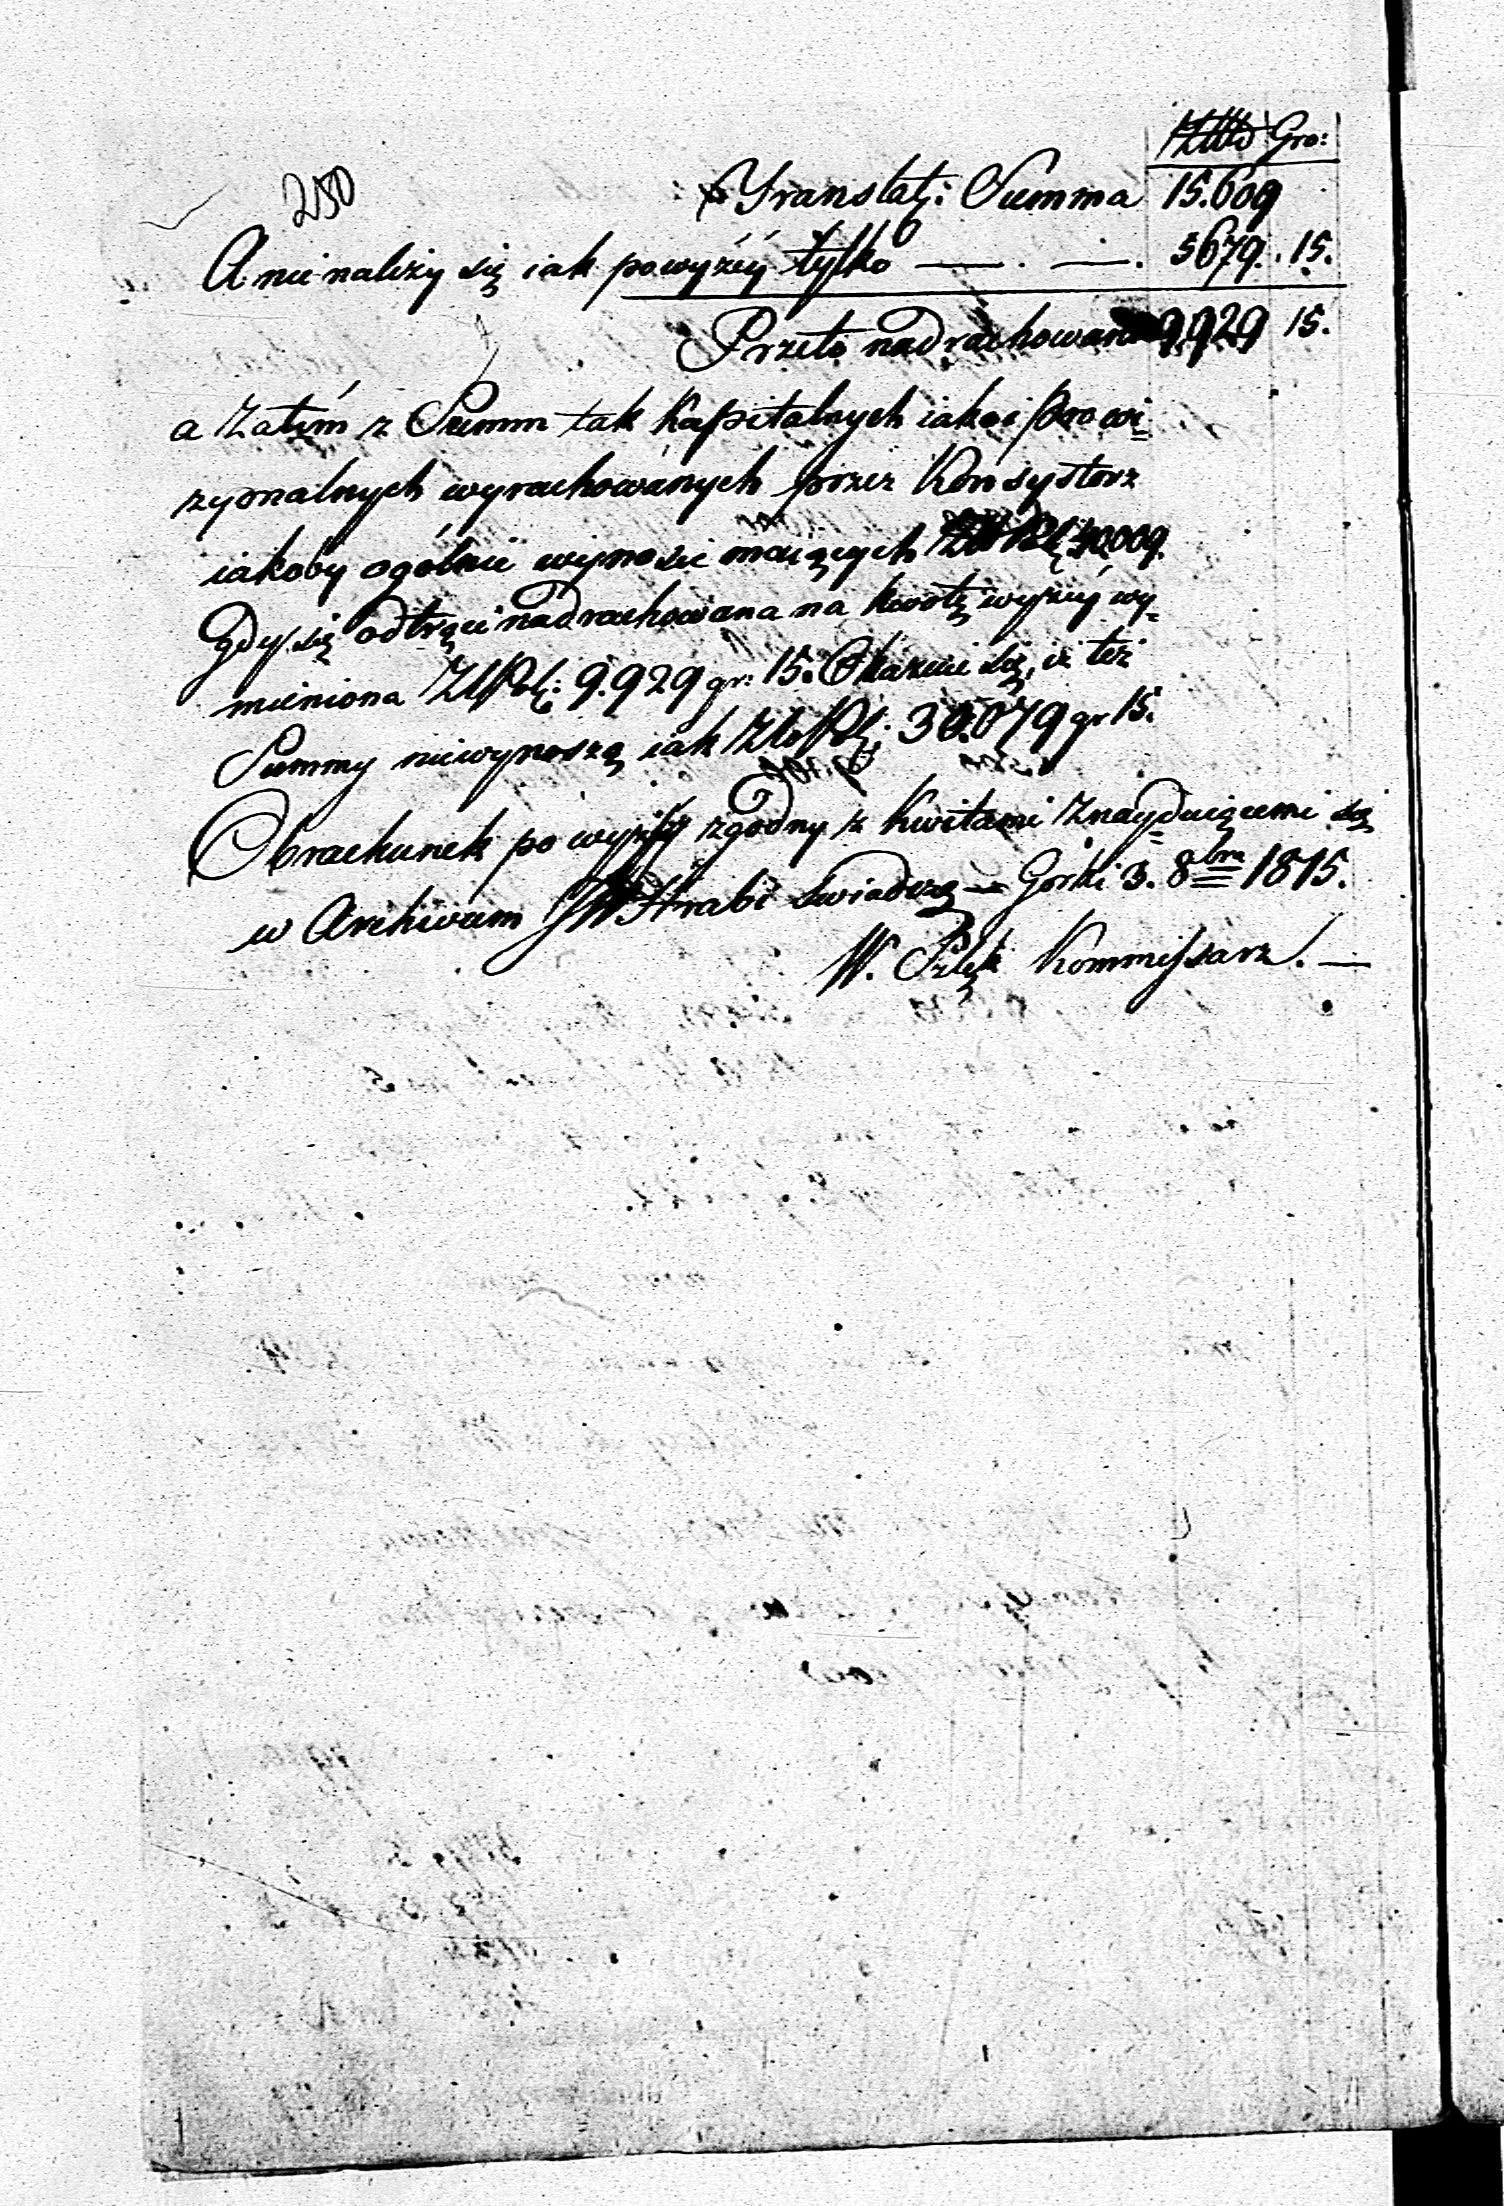 ZłPol Gro:
250
Translat: Summa 15.609
A nie należy się iak powyżéy tylko — . — . 5679. 15.
Przeto nadrachowano 9929 15.
a Zatém z Summ tak Kapitalnych iako i prowi=
zyonalnych wyrachowanych przez Konsystorz
iakoby ogólnie wynosić maiących 40,009.
Gdy się odtrąci nadrachowana na kwotę wyżéy wy=
mieniona ZłPol: 9.929 gr: 15. Okazuie się, iż też
Summy niewynoszą iak ZłoPol: 30.079 gr 15.
Obrachunek powyższy zgodny z Kwitami Znayduiącemi się
w Archivum JW Hrabi świadczę — Gorki 3. 8bra 1815.
W. Kommissarz. —